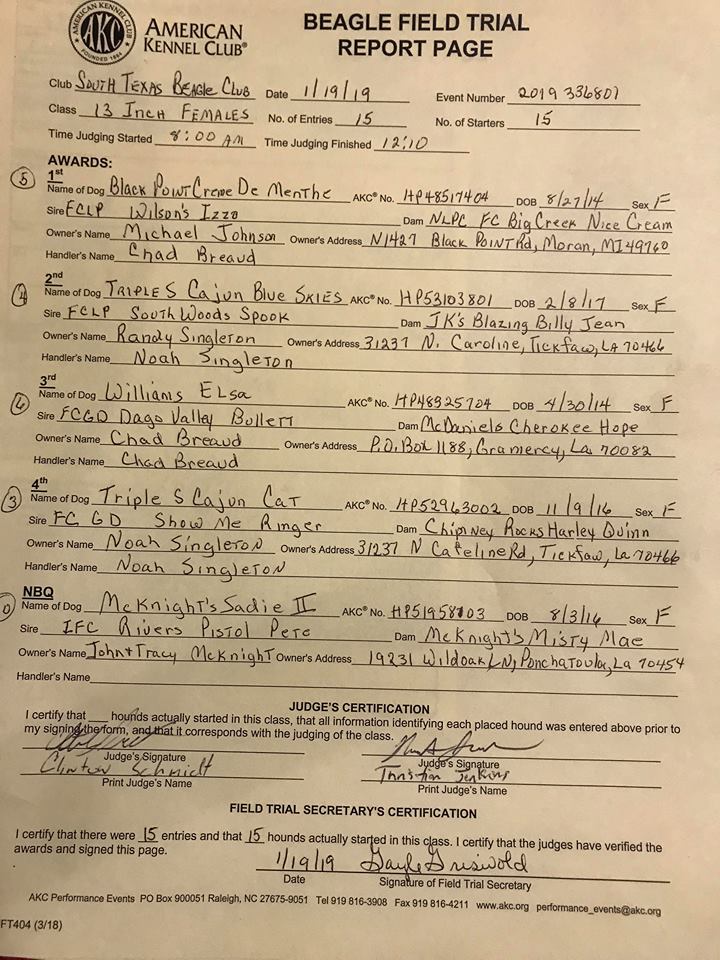 AMERICAN KENNEL CLUB
AKC
FOUNDED 1884
AMERICAN
KENNEL CLUB®
BEAGLE FIELD TRIAL
REPORT PAGE
Club South Texas Beagle Club Date 1/19/19 Event Number 2019336801
Class 13 Inch Females No. of Entries 15 No. of Starters 15
Time Judging Started 8:00 AM Time Judging Finished 12:10
AWARDS:
5 1st
Name of Dog Black Point Creme De Menthe AKC® No. HP48517404 DOB 8/27/14 Sex F
Sire FCLP Wilson's Izzo Dam NLPC FC Big Creek Nice Cream
Owner's Name Michael Johnson Owner's Address N1427 Black Point Rd, Moran, MI 49760
Handler's Name Chad Breaud
2nd
Name of Dog Triple S Cajun Blue Skies AKC® No. HP53103801 DOB 2/8/17 Sex F
Sire FCLP South Woods Spook Dam JK's Blazing Billy Jean
Owner's Name Randy Singleton Owner's Address 31237 N. Caroline, Tickfaw, LA 70466
Handler's Name Noah Singleton
3rd
Name of Dog Williams Elsa AKC® No. HP48325704 DOB 4/30/14 Sex F
Sire FCGD Dago Valley Bullett Dam McDaniels Cherokee Hope
Owner's Name Chad Breaud Owner's Address P.O. Box 1188, Gramercy, La 70082
Handler's Name Chad Breaud
4th
3 Name of Dog Triple S Cajun Cat AKC® No. HP52963002 DOB 11/9/16 Sex F
Sire FC GD Show Me Ringer Dam Chimney Rocks Harley Quinn
Owner's Name Noah Singleton Owner's Address 31237 N Rd, Tickfaw, La 70466
Handler's Name Noah Singleton
NBQ
Name of Dog McKnight's Sadie II AKC® No. HP51958703 DOB 8/3/16 Sex F
Sire IFC Rivers Pistol Pete Dam McKnight's Misty Mae
Owner's Name John + Tracy McKnight Owner's Address 19231 Wildoak LN, Ponchatoula, La 70454
Handler's Name
JUDGE'S CERTIFICATION
I certify that ___ hounds actually started in this class, that all information identifying each placed hound was entered above prior to
my signing the form, and that it corresponds with the judging of the class.
Judge's Signature Judge's Signature
Clinton Schmidt Jenkins
Print Judge's Name Print Judge's Name
FIELD TRIAL SECRETARY'S CERTIFICATION
I certify that there were 15 entries and that 15 hounds actually started in this class. I certify that the judges have verified the
awards and signed this page.
1/19/19 Gayle Griswold
Date Signature of Field Trial Secretary
AKC Performance Events PO Box 900051 Raleigh, NC 27675-9051 Tel 919 816-3908 Fax 919 816-4211 www.akc.org performance_events@akc.org
FT404 (3/18)